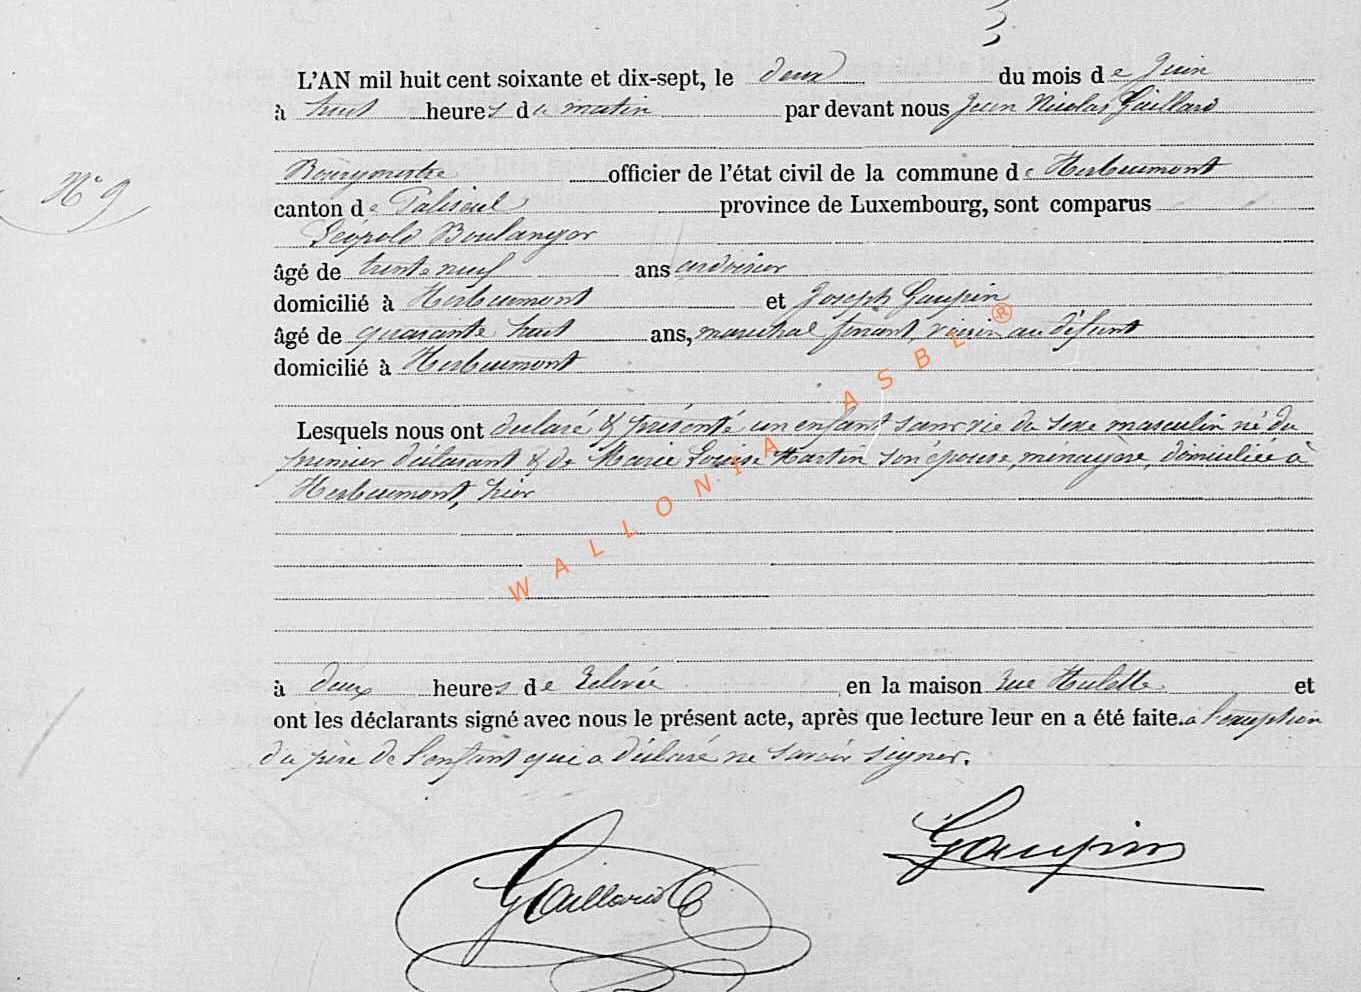 L'AN mil huit cent soixante et dix-sept, le deux du mois de Juin
à huit heures du matin par devant nous Jean Nicolas Gaillard
Bourgmestre officier de l'état civil de la commune de Herbeumont
N° 9
canton de Paliseul province de Luxembourg, sont comparus
Léopold Boulanger
âgé de trente neuf ans ardoisier
domicilié à Herbeumont et Joseph Gaupin
âgé de quarante huit ans, maréchal ferrant, voisin au défunt
domicilié à Herbeumont
Lesquels nous ont déclaré & présenté un enfant sans vie du sexe masculin né du
premier déclarant & de Marie Louise Martin son épouse, ménagère, domiciliée à
Herbeumont, hier
à deux heures de relevée en la maison rue Hulette et
ont les déclarants signé avec nous le présent acte, après que lecture leur en a été faite. a l'exception
du père de l'enfant qui a déclaré ne savoir signer.
Gaupin
Gaillard
WALLONIA ASBL ®